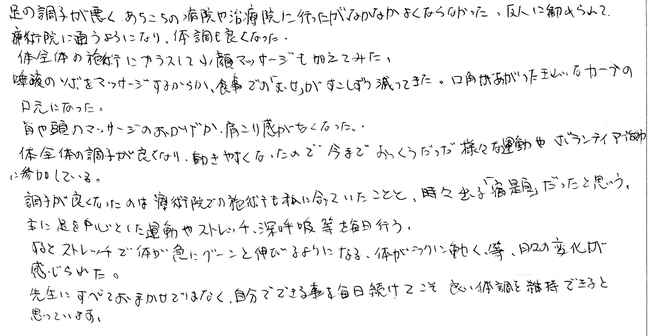 足の調子が悪く あちこちの病院や治療院に行ったがなかなかよくならなかった。友人に勧められて、
療術院に通うようになり、体調も良くなった。
体全体の施術にプラスして小顔マッサージも加えてみた。
唾液のツボをマッサージするからか、食事での「むせ」がすこしずつ減ってきた。口角があがったきれいなカーブの
口元になった。
首や頭のマッサージのおかげか肩こり感がなくなった。
体全体の調子が良くなり、動きやすくなったので今までおっくうだった様々な運動やボランティア活動
に参加している。
調子が良くなったのは療術院での施術も私に合っていたことと、時々出る「宿題」だったと思う。
主に足を中心とした運動やストレッチ、深呼吸等を毎日行う。
するとストレッチで体が急にグーンと伸びるようになる、体がラクに動く、等、日々の変化が
感じられた。
先生にすべておまかせではなく、自分でできる事を毎日続けてこそ 良い体調を維持できると
思っています。